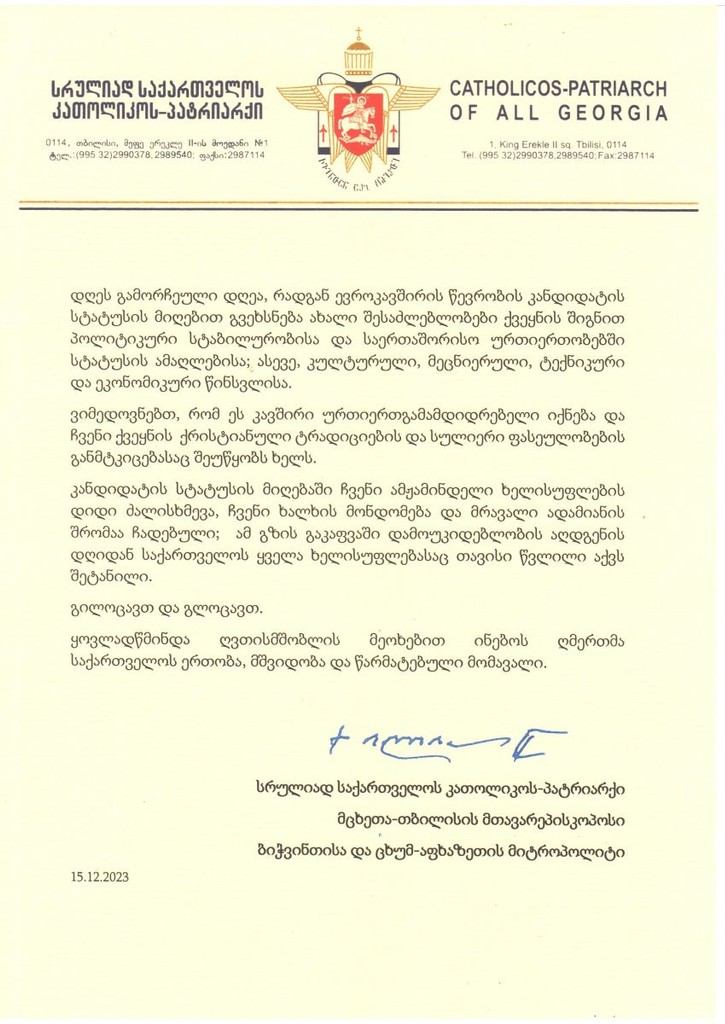 სრულიად საქართველოს
კათოლიკოს-პატრიარქი
0114, თბილისი, მეფე ერეკლე II-ის მოედანი №1
ტელ.:(995 32)2990378,2989540; ფაქსი:2987114
CATHOLICOS-PATRIARCH
OF ALL GEORGIA
1, King Erekle II sq. Tbilisi, 0114
Tel. (995 32)2990378,2989540;Fax:2987114
დღეს გამორჩეული დღეა, რადგან ევროკავშირის წევრობის კანდიდატის
სტატუსის მიღებით გვეხსნება ახალი შესაძლებლობები ქვეყნის შიგნით
პოლიტიკური სტაბილურობისა და საერთაშორისო ურთიერთობებში
სტატუსის ამაღლებისა; ასევე, კულტურული, მეცნიერული, ტექნიკური
და ეკონომიკური წინსვლისა.
ვიმედოვნებთ, რომ ეს კავშირი ურთიერთგამამდიდრებელი იქნება და
ჩვენი ქვეყნის ქრისტიანული ტრადიციების და სულიერი ფასეულობების
განმტკიცებასაც შეუწყობს ხელს.
კანდიდატის სტატუსის მიღებაში ჩვენი ამჟამინდელი ხელისუფლების
დიდი ძალისხმევა, ჩვენი ხალხის მონდომება და მრავალი ადამიანის
შრომაა ჩადებული; ამ გზის გაკაფვაში დამოუკიდებლობის აღდგენის
დღიდან საქართველოს ყველა ხელისუფლებასაც თავისი წვლილი აქვს
შეტანილი.
გილოცავთ და გლოცავთ.
ყოვლადწმინდა ღვთისმშობლის მეოხებით ინებოს ღმერთმა
საქართველოს ერთობა, მშვიდობა და წარმატებული მომავალი.
სრულიად საქართველოს კათოლიკოს-პატრიარქი
მცხეთა-თბილისის მთავარეპისკოპოსი
ბიჭვინთისა და ცხუმ-აფხაზეთის მიტროპოლიტი
15.12.2023